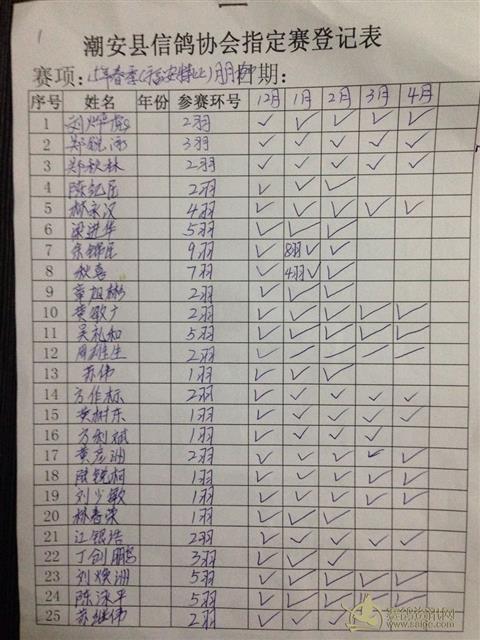 1
潮安县信鸽协会指定赛登记表
赛项：15年春季(福安特比)月月柳日期：
序号 姓名 年份 参赛环号 12月 1月 2月 3月 4月
1 2羽 ✓ ✓ ✓ ✓ ✓
2 3羽 ✓ ✓ ✓ ✓ ✓
3 郑秋林 2羽 ✓ ✓ ✓ ✓ ✓
4 2羽 ✓ ✓ ✓
5 林永汉 4羽 ✓ ✓ ✓ ✓ ✓
6 梁进华 5羽 ✓ ✓ ✓
7 9羽 ✓ 8羽✓ ✓
8 秋喜 7羽 ✓ 4羽✓ ✓
9 章祖彬 2羽 ✓ ✓ ✓
10 黄敏广 2羽 ✓ ✓ ✓ ✓ ✓
11 吴礼和 5羽 ✓ ✓ ✓ ✓ ✓
12 周雄生 2羽 ✓ ✓ ✓ ✓ ✓
13 苏伟 1羽 ✓ ✓ ✓
14 方作标 2羽 ✓ ✓ ✓ ✓ ✓
15 黄树东 1羽 ✓ ✓ ✓ ✓ ✓
16 方创斌 1羽 ✓ ✓ ✓ ✓
17 黄彦洲 2羽 ✓ ✓ ✓ ✓ ✓
18 陆锐桐 1羽 ✓ ✓ ✓ ✓ ✓
19 刘少敏 1羽 ✓ ✓ ✓ ✓ ✓
20 林春荣 1羽 ✓ ✓ ✓
21 江银浩 2羽 ✓ ✓ ✓ ✓ ✓
22 丁创鹏 3羽 ✓ ✓ ✓
23 刘焕洲 5羽 ✓ ✓ ✓ ✓ ✓
24 陈泳平 5羽 ✓ ✓ ✓ ✓ ✓
25 苏继伟 2羽 ✓ ✓ ✓ ✓ ✓
赛鸽资讯网
www.saige.com